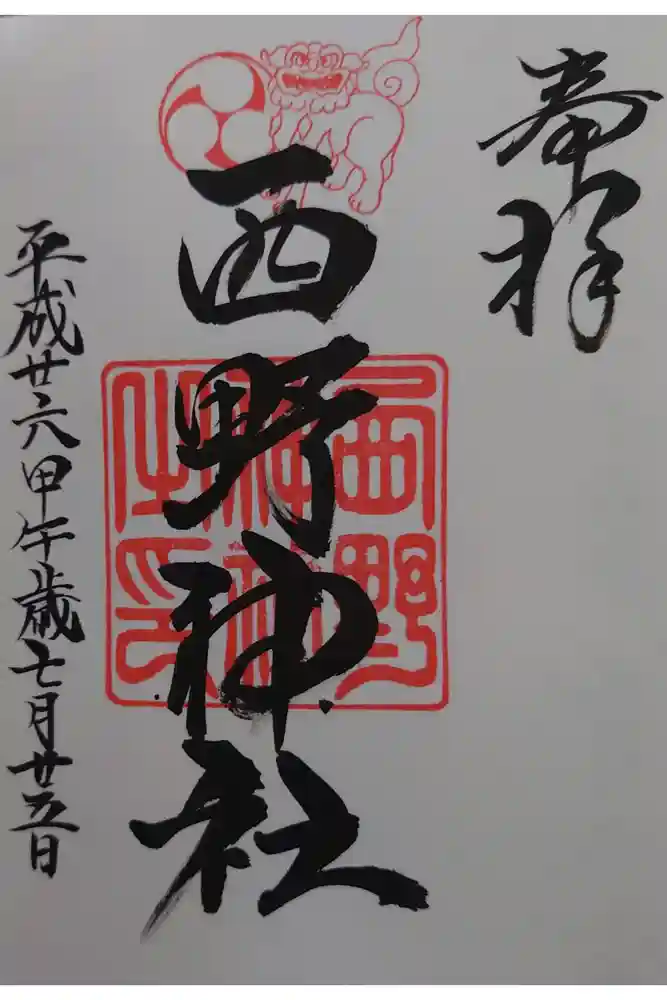 奉拝
西野神社
西野神社之印
平成廿六甲午歳七月廿五日